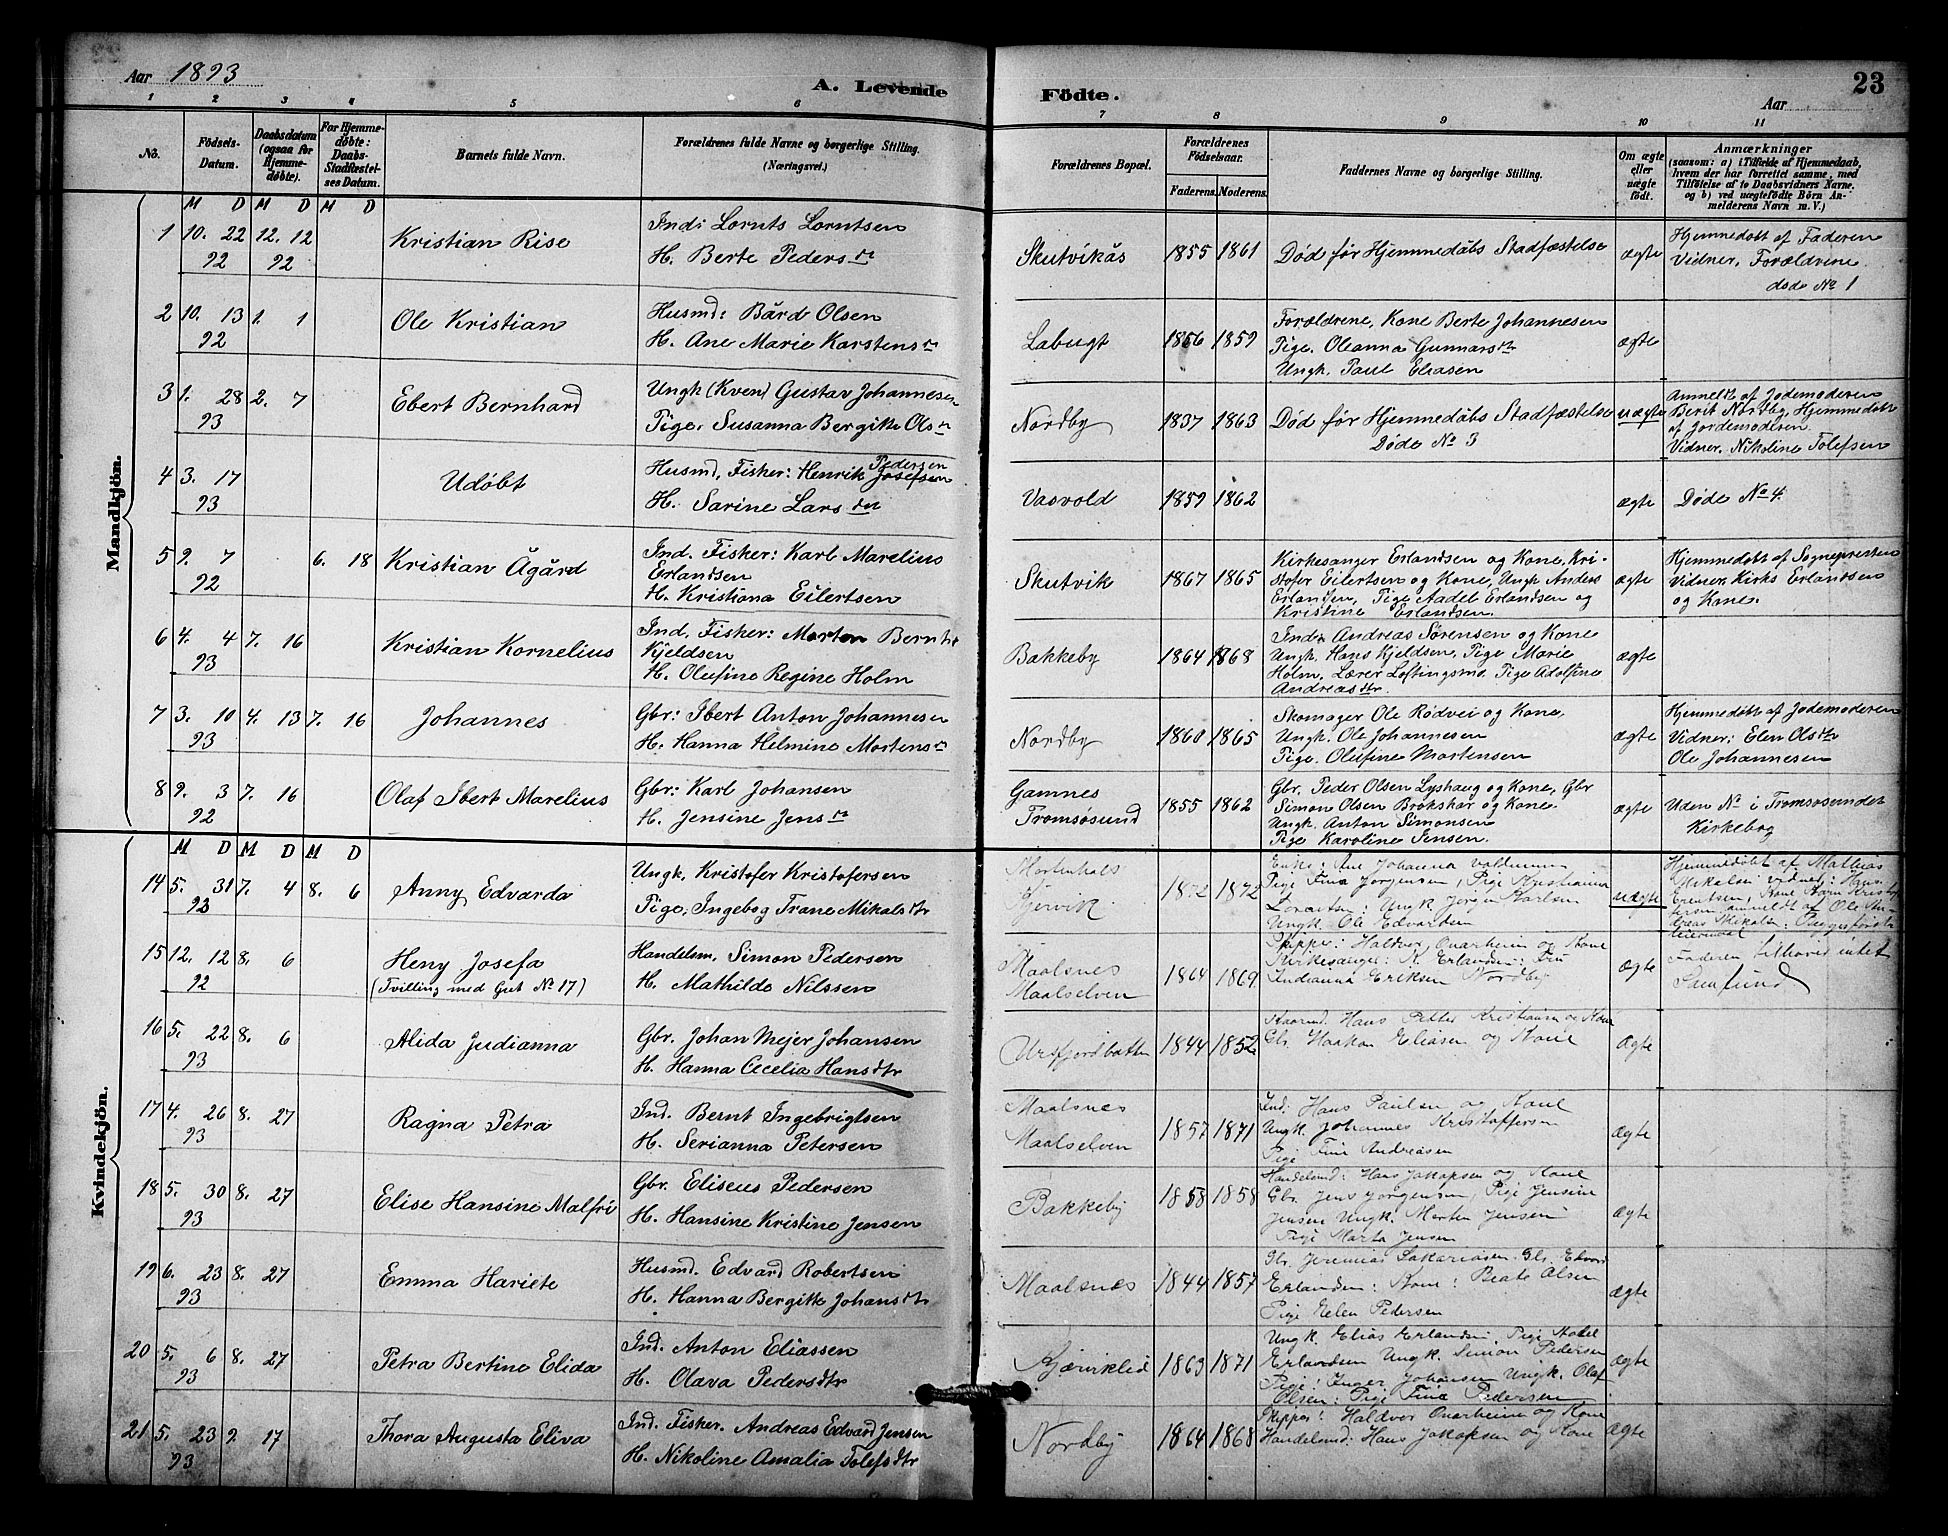 Aar 1893
A. Levende Fødte.
Aar
23
1 2 3 4 5 6 7 8 9 10 11
No.
Fødsels-Datum.
Daabsdatum (ogsaa for Hjemmedøbte).
For Hjemmedøbte: Daabs-Stadfæstelses Datum.
Barnets fulde Navn.
Forældrenes fulde Navne og borgerlige Stilling. (Næringsvei.)
Forældrenes Bopæl.
Forældrenes Fødselsaar.
Faderens. Moderens.
Faddernes Navne og borgerlige Stilling.
Om ægte eller uægte født.
Anmærkninger (saasom: a) i Tilfælde af Hjemmedaab, hvem der har forrettet samme, med Tilføielse af to Daabsvidners Navne, og b) ved uægtefødte Børn Anmelderens Navn m. V.)
Mandkjön.
M D M D M D
1 10. 22 92 12. 12 92
Kristian Rise
Ind: Lornts Lorntsen
H. Berte Pedersdr
Skutvikås 1855 1861
Død før Hjemmedåbs Stadfæstelse
ægte
Hjemmedøbt af Faderen
Vidner, Forældrene
døde No 1
2 10. 13 92 1. 1
Ole Kristian
Husmd: Bård Olsen
H. Ane Marie Karstensdr
Labugt 1856 1859
Forældrene, Kone Berte Johannesen
Pige. Oleanna Gunnarsdtr
Ungk. Paul Eliasen
ægte
3 1. 28 93 2. 7
Ebert Bernhard
Ungk (Kven) Gustav Johannesen
Pige. Susanna Bergitte Olsdr
Nordby 1837 1863
Død før Hjemmedåbs Stadfæstelse
Døde No 3
uægte
Anmeldt af Jodemoderen
Berit Nordby, Hjemmedøbt
af Jordemoderen.
Vidner. Nikoline Tolefsen
4 3. 17 93
Udøbt
Husmd, Fisker: Henrik Pedersen Josefsen
H. Sarine Larsdtr
Vasvold 1859 1862
ægte
Døde No 4.
5 9. 7 92 6. 18
Kristian Ågård
Ind. Fisker: Karl Marelius
Erlandsen
H. Kristiana Eilertsen
Skutvik 1867 1865
Kirkesanger Erlandsen og Kone, Kri-
stofer Eilertsen og Kone, Ungk Anders
Erlandsen, Pige Aadel Erlandsen og
Kristine Erlandsen.
ægte
Hjemmedøbt af Sognepresten
Vidner, Kirks Erlandsen
og Kone.
6 4. 4 93 7. 16
Kristian Kornelius
Ind, Fisker: Morton Bernh.
Kjeldsen
H. Olufine Regine Holm
Bakkeby 1864 1868
Ind: Andreas Sørensen og Kone
Ungk. Hans Kjeldsen, Pige Marie
Holm, Lærer Loftingsmo, Pige Adolfine
Andreasdtr.
ægte
7 3. 10 93 4. 13 7. 16
Johannes
Gbr: Ibert Anton Johannesen
H. Hanna Helmine Mortensdr
Nordby 1860 1865
Skomager Ole Rødvei og Kone,
Ungk. Ole Johannesen
Pige. Olufine Mortensen
ægte
Hjemmedøbt af Jodemoderen
Vidner: Elen Olsdtr
Ole Johannesen
8 9. 3 92 7. 16
Olaf Ibert Marelius
Gbr: Karl Johansen
H. Jensine Jensdr
Gamnes
Tromsøsund 1855 1862
Gbr, Peder Olsen Lyshaug og Kone, Gbr
Simon Olsen Brokskar og Kone
Ungk. Anton Simonsen
Pige Karoline Jensen.
ægte
Uden No i Tromsøsundets
Kirkebog
Kvindekjön.
M D M D M D
14 5. 31 93 7. 4 8. 6
Anny Edvarda
Ungk, Kristofer Kristofersen
Pige, Ingebog Trane Mikalsdtr
Mortenhals
Kjervik 1872 1872
Enke: Ane Johanna
Pige Fina Jørgensen, Pige Kristianna
Ungk Jørgen Karlsen
Ungk. Ole Edvardsen
uægte
Hjemmedøbt af Mathias
Mikalsen vidner: Hans
15 12. 12 92 8. 6
Heny Josefa
(Tvilling med Gut No 17)
Handelsm, Simon Pedersen
H. Mathilde Nilssen
Maalsnes
Maalselven 1864 1869
Skipper: Haldvor Ovarheim og Kone
Kirkesanger: K. Erlandsen: Fru
Indianna Eriksen Nordby
ægte
Faderen tilhører intet
Samfund
16 5. 22 93 8. 6
Alida Judianna
Gbr. Johan Mejer Johansen
H. Hanna Cecelia Hansdtr
Ursfjordbotten 1844 1852
Kaarmd. Hans Petter Kristiansen og Kone
Gbr. Haakon Eliasen og Kone
Ægte
17 4. 26 93 8. 27
Ragna Petra
Ind. Bernt Ingebrigtsen
H. Serianna Petersen
Maalsnes
Maalselven 1857 1871
Ind: Hans Paulsen og Kone
Ungk. Johannes Kristoffersen
Pige Fine Andreasen
ægte
18 5. 30 93 8. 27
Elise Hansine Malfri
Gbr. Eliseus Pedersen
H. Hansine Kristine Jensen
Bakkeby 1858 1858
Handelsmd: Hans Jakopsen og Kone
Gbr. Jens Jørgensen, Pige Jensine
Jensen Ungk. Morten Jensen
Pige Marta Jensen
ægte
19 6. 23 93 8. 27
Emma Hariete
Husmd. Edvard Robertsen
H. Hanna Bergitte Johansdtr
Maalsnes 1844 1857
Gbr. Jeremias Sakariasen. Gbr. Edvard
Erlandsen: Kone: Beate Olsen
Pige Helen Pedersen
ægte
20 5. 6 93 8. 27
Petra Bertine Elida
Ind. Anton Eliassen
H. Olava Pedersdtr
Kjærviklid 1863 1871
Ungk. Elias Erlandsen. Pige Aadel
Erlandsen Ungk. Simon Pedersen
Pige: Inger Johansen Ungk. Olaf
Olsen: Pige Fina Pedersen
ægte
21 5. 23 93 9. 17
Thora Augusta Eliva
Ind. Fisker. Andreas Edvard Jensen
H. Nikoline Amalia Tolefsdtr
Nordby 1864 1868
Skipper: Haldvor Ovarheim og Kone
Handelsmd: Hans Jakopsen og Kone
ægte